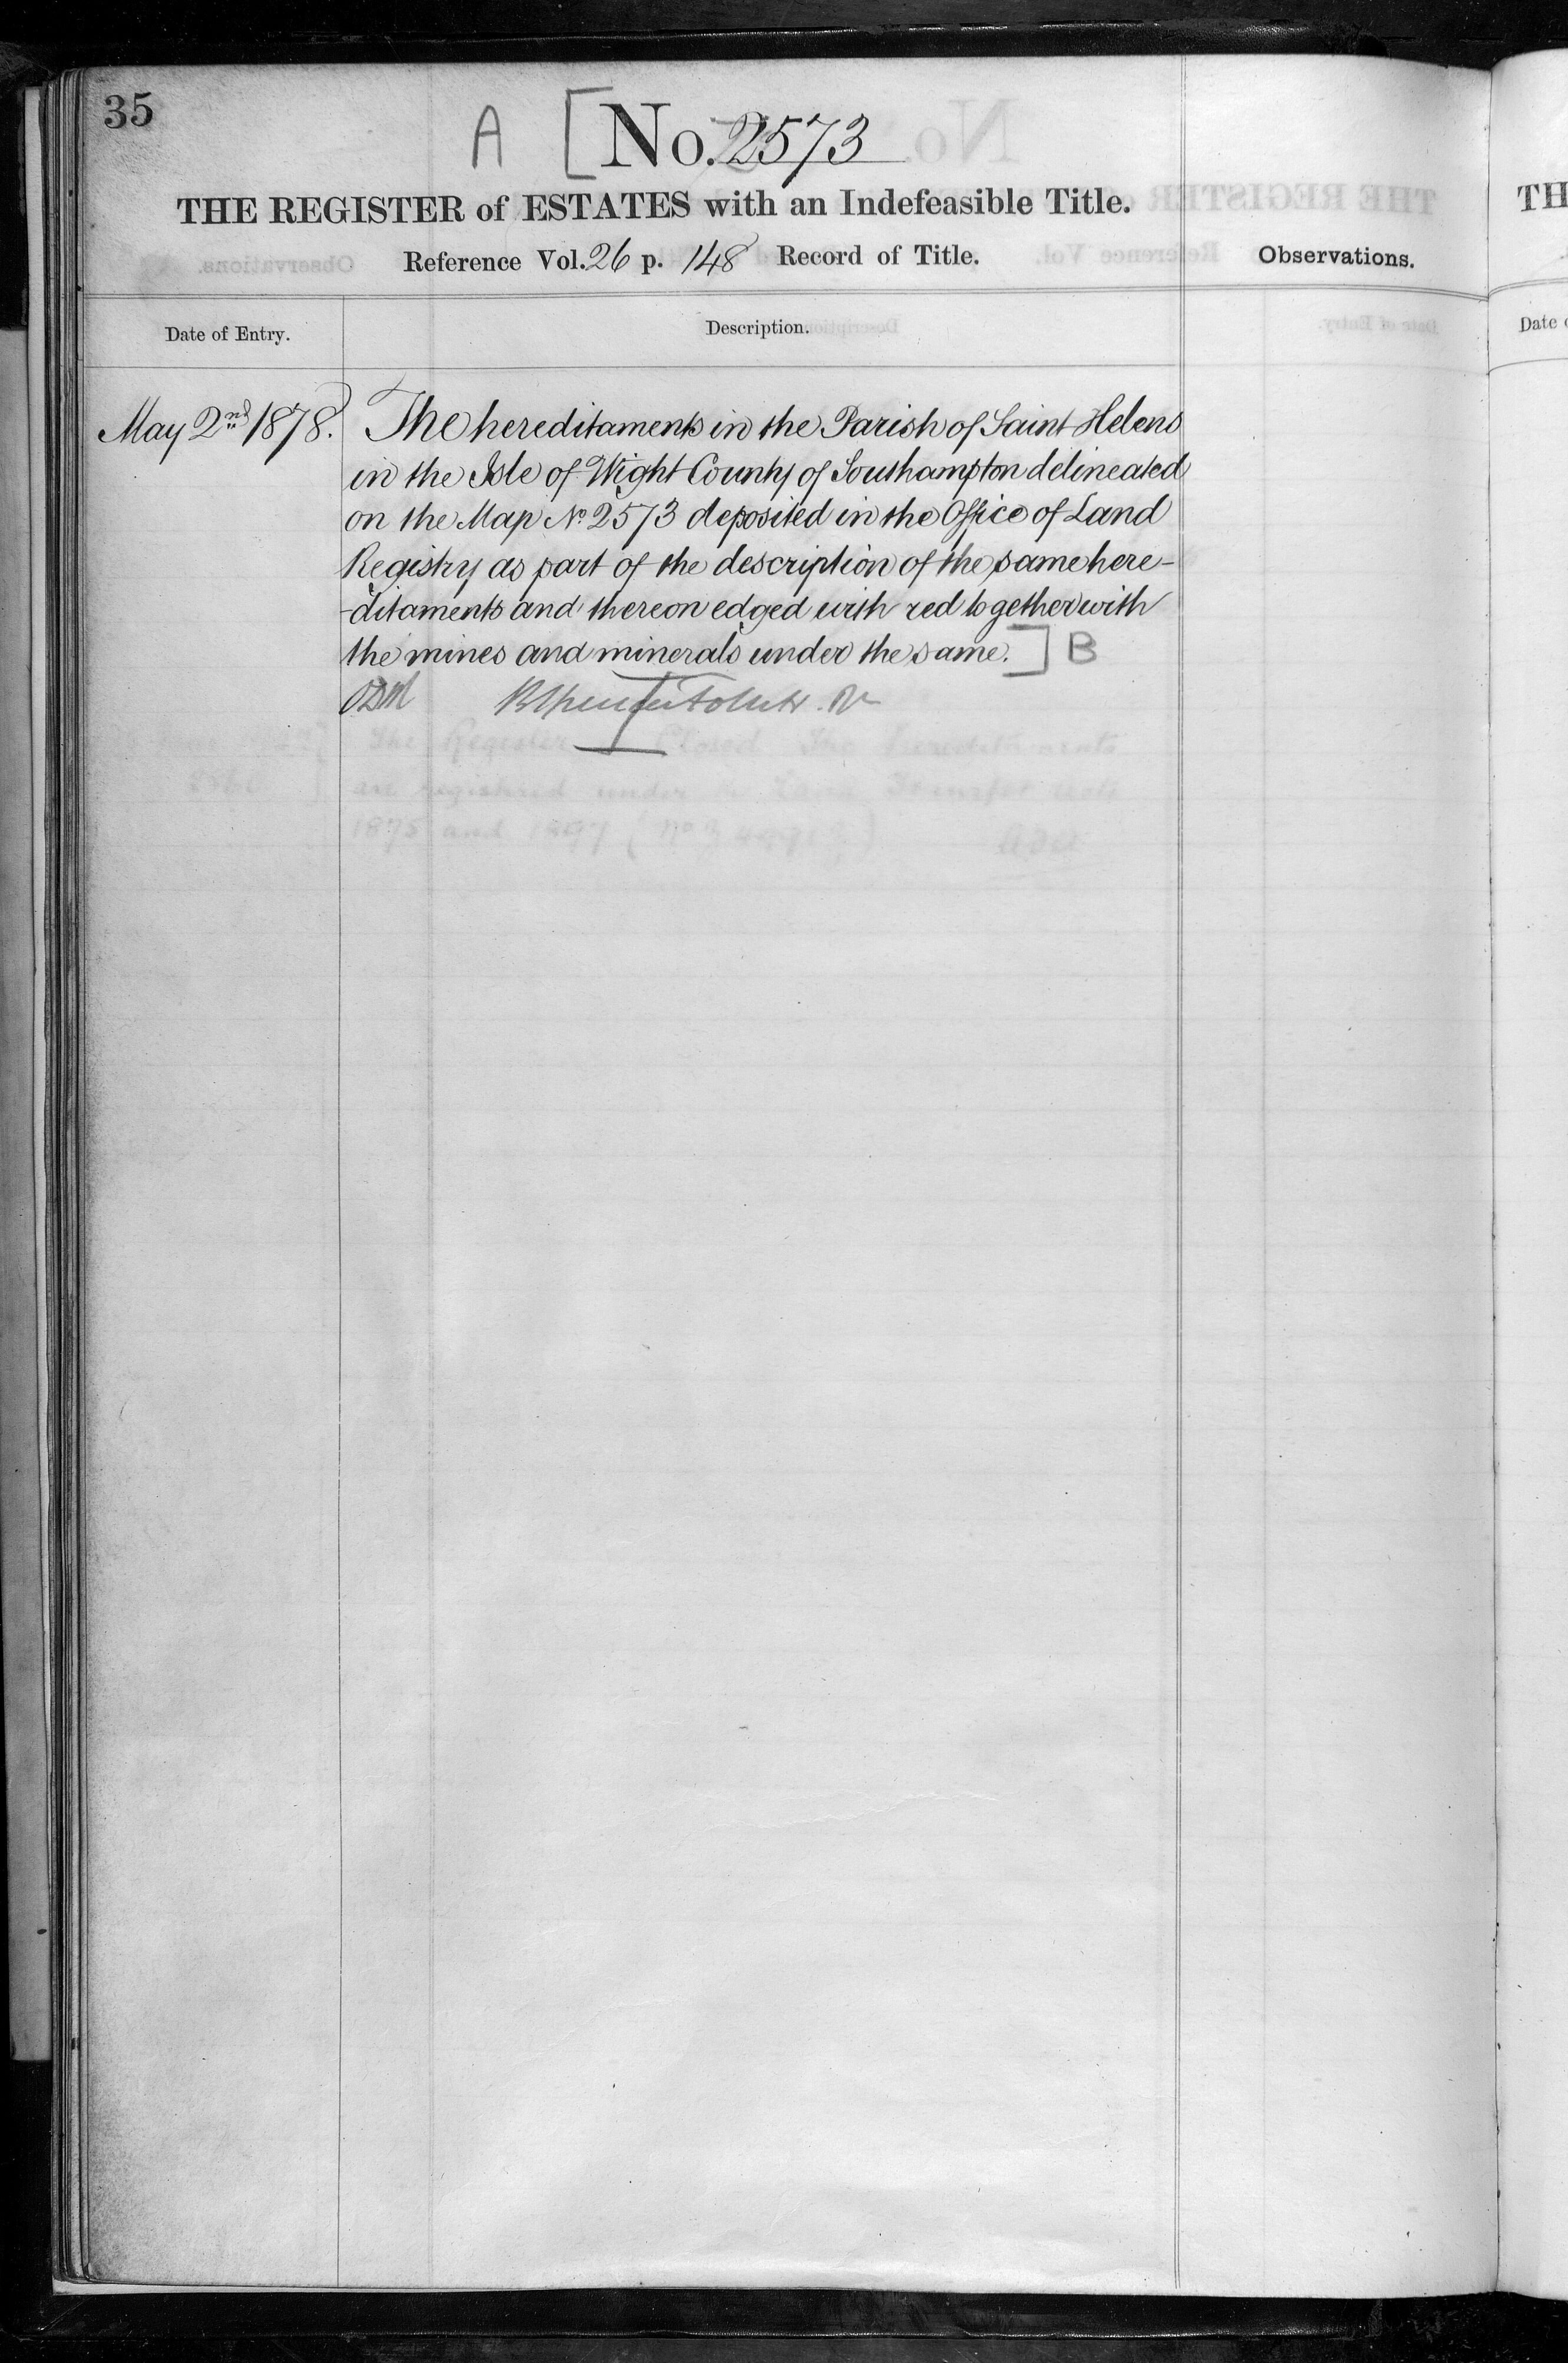 35
A [ No. 2573
THE REGISTER of ESTATES with an Indefeasible Title.
Reference Vol. 26 p. 148 Record of Title.
Observations.
Date of Entry.
Description.
May 2nd 1878.
The hereditaments in the Parish of Saint Helens
in the Isle of Wight County of Southampton delineated
on the Map No 2573 deposited in the Office of Land
Registry as part of the description of the same here-
-ditaments and thereon edged with red together with
the mines and minerals under the same. ] B
The Register Closed The hereditaments
are registered under the Land Transfer Acts
1875 and 1897
TH
Date